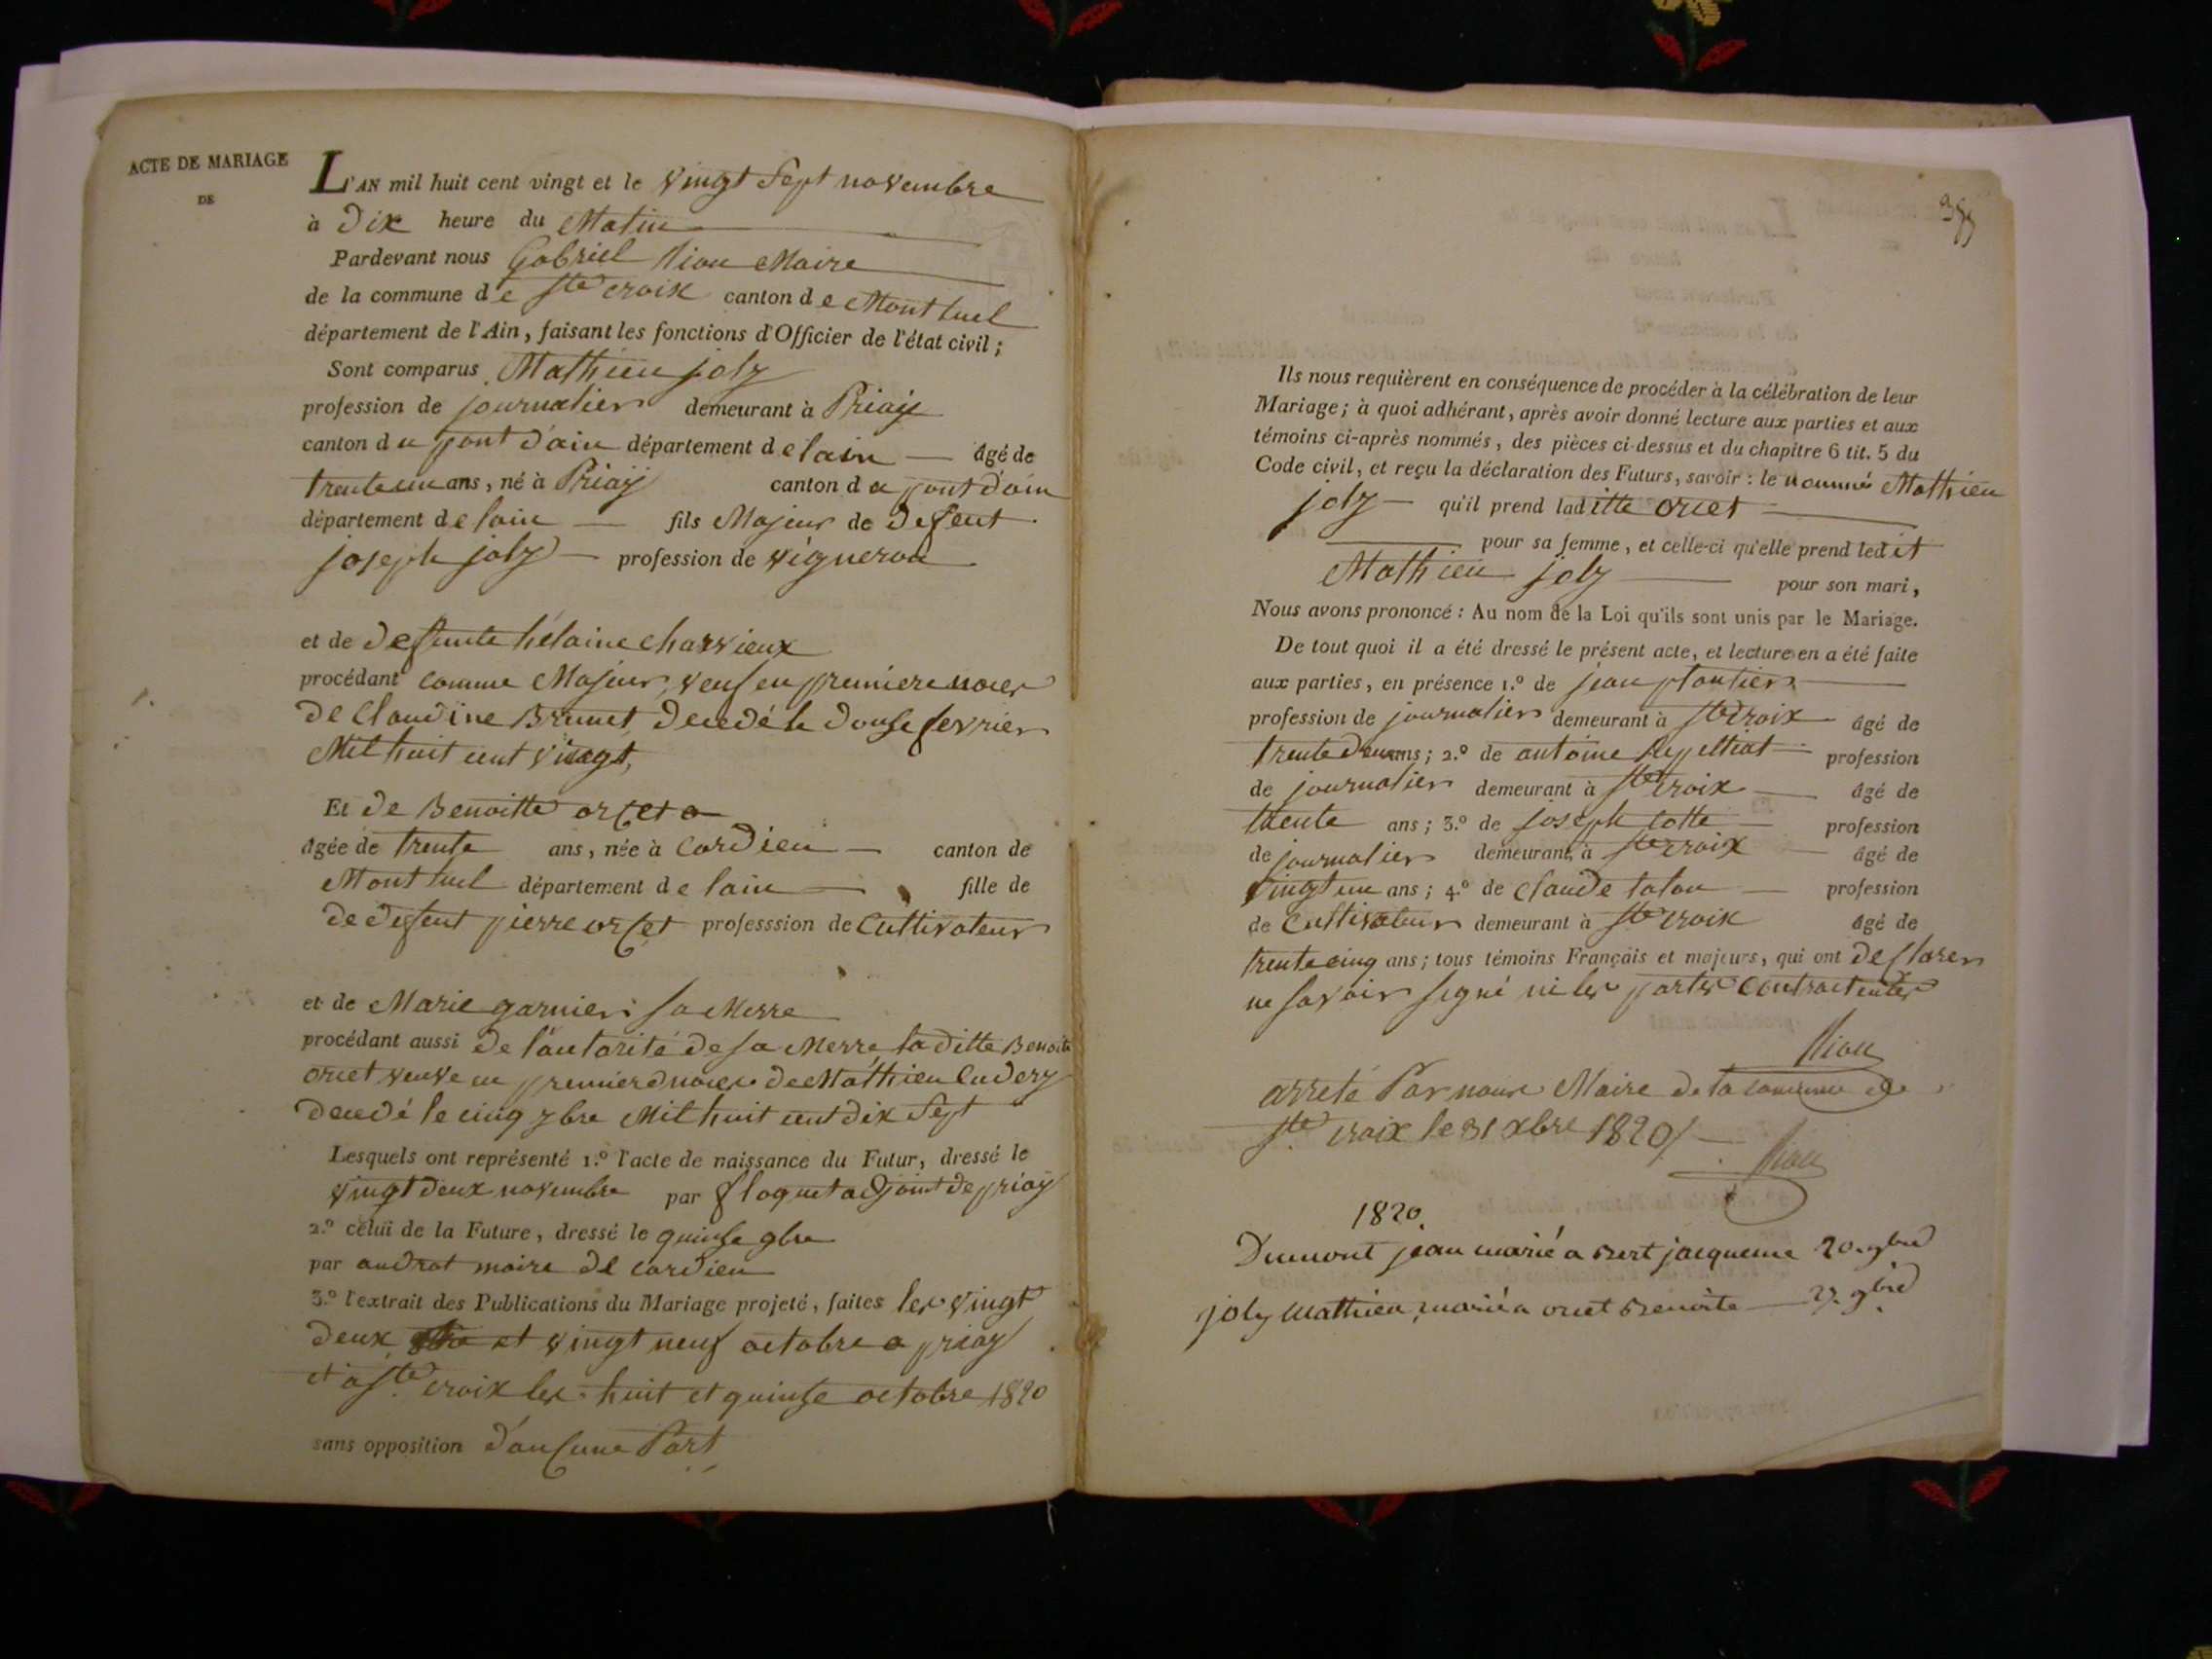 ACTE DE MARIAGE
DE
L'AN mil huit cent vingt et le vingt sept novembre
à dix heure du Matin
Pardevant nous Gabriel Niou Maire
de la commune de Ste croix canton de Montluel
département de l'Ain, faisant les fonctions d'Officier de l'état civil ;
Sont comparus Mathieu joly
profession de journalier demeurant à Priay
canton du pont d'ain département de lain âgé de
trente un ans, né à Priay canton du pont d'ain
département de lain fils Majeur de defent
joseph joly profession de vigneron
et de defunte hélaine charvieux
procédant comme Majeur, veuf en premiere noces
de Claudine Brunet decedé le douse fevrier
Mil huit cent vingt,
Et de Benoitte orcet a
âgée de trente ans, née à Cordieu canton de
Montluel département de lain fille de
de defent pierre orcet professsion de Cultivateur
et de Marie garnier sa Merre
procédant aussi de l'autorité de sa Merre, la ditte Benoite
orcet veuve en premierd noces de Mathieu Cudery
decedé le cinq 7bre Mil huit cent dix Sept
Lesquels ont représenté 1.º l'acte de naissance du Futur, dressé le
vingt deux novembre par floquet adjoint de priay
2.º celui de la Future, dressé le quinse 9bre
par audrat maire de cordieu
3.º l'extrait des Publications du Mariage projeté, faites les vingt
deux et vingt neuf octobre a priay
et a Ste croix les huit et quinse octobre 1820
sans opposition d'aucune Part
Ils nous requièrent en conséquence de procéder à la célébration de leur
Mariage ; à quoi adhérant, après avoir donné lecture aux parties et aux
témoins ci-après nommés, des pièces ci-dessus et du chapitre 6 tit. 5 du
Code civil, et reçu la déclaration des Futurs, savoir : le nommé Mathieu
joly qu'il prend laditte orcet
pour sa femme, et celle-ci qu'elle prend ledit
Mathieu joly pour son mari,
Nous avons prononcé : Au nom de la Loi qu'ils sont unis par le Mariage.
De tout quoi il a été dressé le présent acte, et lecture en a été faite
aux parties, en présence 1.º de jean plantier
profession de journalier demeurant à Ste Croix âgé de
trente deux ans ; 2.º de antoine profession
de journalier demeurant à Ste croix âgé de
trente ans ; 3.º de joseph cotte profession
de journalier demeurant à Ste croix âgé de
vingt un ans ; 4.º de Claude profession
de Cultivateur demeurant à Ste croix âgé de
trente cinq ans ; tous témoins Français et majeurs, qui ont declarer
ne savoir signé ni les partes Contractentes
Niou
arreté Par nous Maire de la commune de
Ste croix le 31 xbre 1820
Niou
1820.
Dumont jean marié a Bert jacqueme 20. 9bre
joly Mathieu, marié a orcet Benoite 27. 9bre